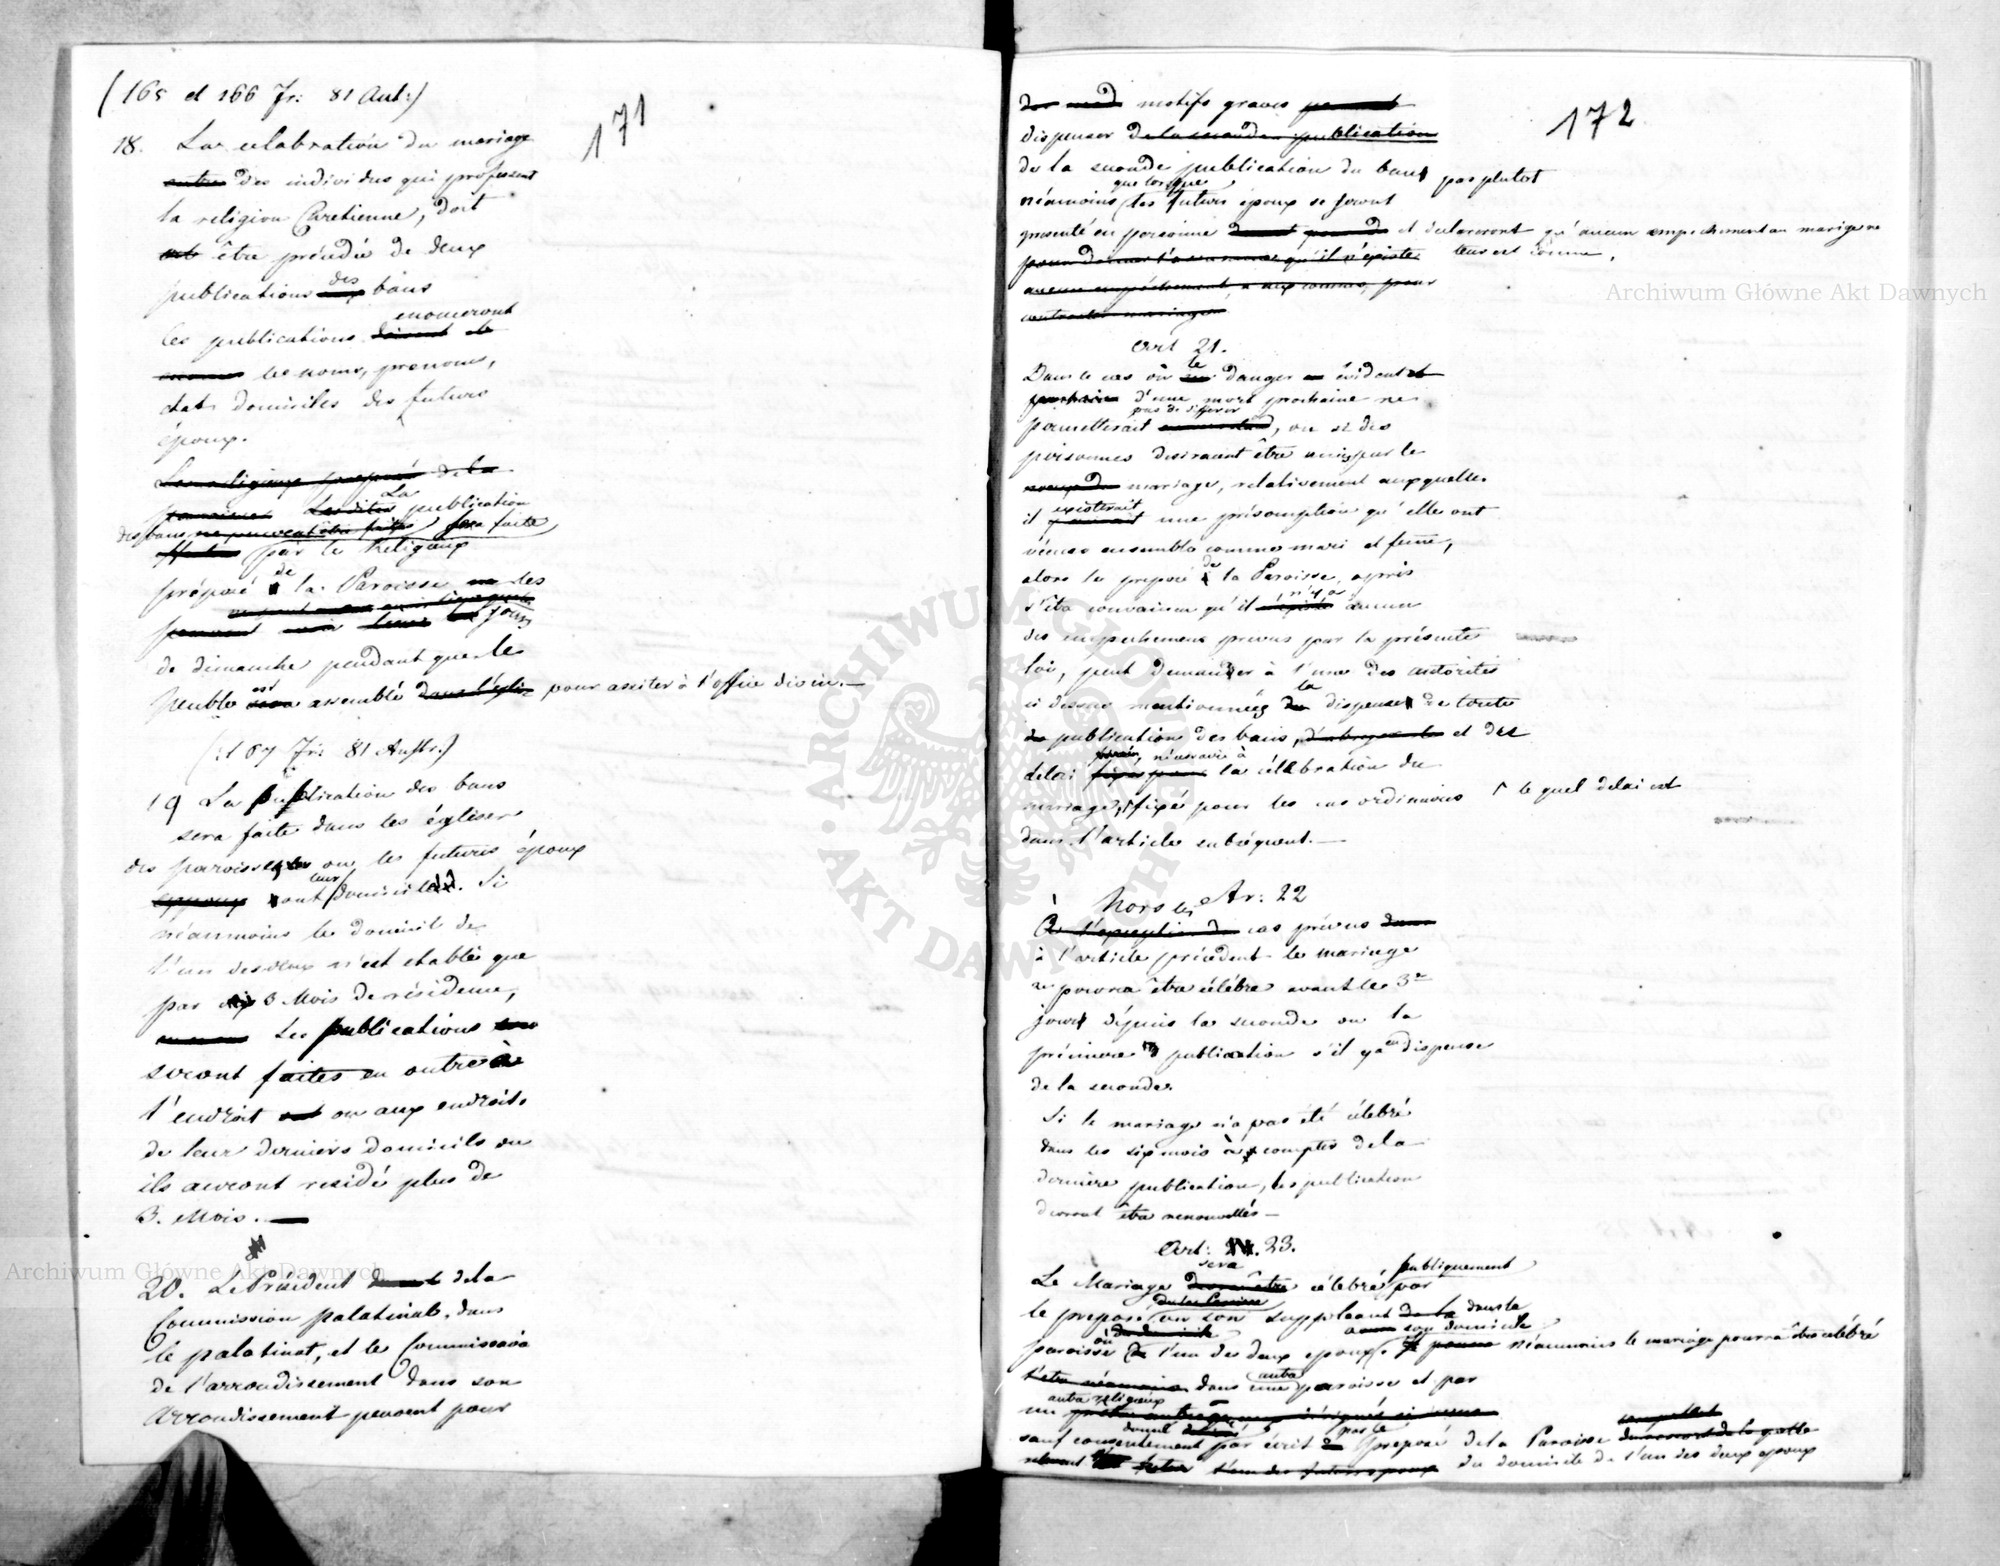 (165 et 166 Fr: 81 Aut:)
171
18. La celebration du mariage
entre des individus qui professent
la religion Chretienne, doit
être précédée de deux
publications des bans
enonceront
Ces publications doivent et le
les noms, prenoms,
etat domiciles des futurs
époux.
de la
La publication
des bans ne peuvent être faites sera faite
par le Religieux
préposé de la Paroisse les
jours
de dimanche pendant que le
peuple est assemblé dans l'église pour assister à l'office divin.—
(:167 Fr: 81 Austr.)
19 La publication des bans
sera faite dans les églises
des paroisses ou les futurs époux
ont leur domicile. Si
néanmoins le domicil de
l'un des deux n'est etabli que
par 3 Mois de résidence,
Les publications
seront faites en outre à
l'endroit ou aux endroits
de leur derniers domicils ou
ils auront residé plus de
3. Mois. —
20. Le President de la
Commission palatinale, dans
le palatinat, et le Commissaire
de l'arrondissement dans son
arrondissement peuvent pour
172
motifs graves
dispenser de la seconde publication
de la seconde publication du bans pas plutot
que lorsque
néamoins les futurs époux se seront
presenté en personne et declareront qu'aucun empechement au mariage ne
pour donner l'assurance qu'il n'existe leur est connu.
aucun empéchement, a eux connus, pour
contracter mariage
Art 21.
Dans le cas où le danger évident et
prochain d'une mort prochaine ne
pas de differer
permetterait, ou si des
personnes desiraient être unis par le
mariage, relativement auxquelles
existerait
il une présomption qu'elles ont
vécues ensemble comme mari et feme,
alors le preposé de la Paroisse, après
s'être convaincu qu'il n'y a aucun
des empechemens prevus par la présente
loi, peut demander à l'une des autorités
ci dessus mentionnées la dispense de toute
publications des bans, et des
nécessaire à
delai la célébration du
mariage, fixé pour les cas ordinaires le quel delai est
dans l'article subséquent.—
Ar: 22
Hors les
A l'exception des cas prévus dans
à l'article précédent le mariage
ne pourra être célébré avant le 3me
jour dépuis la seconde ou la
prémiere publication s'il y a eu dispense
de la seconde.
Si le mariage n'a pas été célebré
dans les six mois à compter de la
derniere publication, les publication
devront être renouvellés —
Art: 23.
sera publiquement
Le Mariage devra être célébré par
de la Paroisse
le preposé ou son suppleant de la dans la
du domicile son domicile
paroisse où l'un des deux epoux néanmoins le mariage pourra être célébré
autre
dans une paroisse et par
autre religieux
un
donné par le
sauf consentement par écrit preposé de la Paroisse
du domicile de l'un des deux epoux
Archiwum Główne Akt Dawnych
Archiwum Główne Akt Dawnych
ARCHIWUM GŁÓWNE AKT DAWNYCH